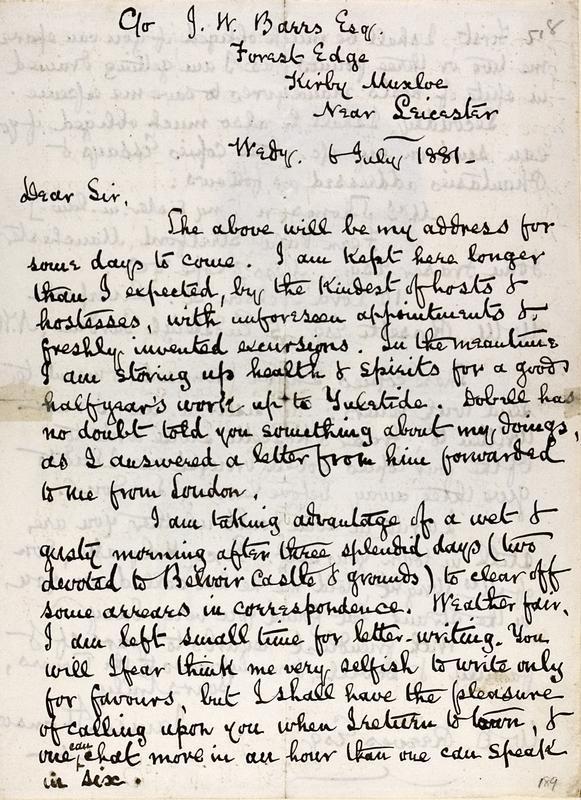 C/o J. W. Barrs Esq.
Forest Edge
Kirby Muxloe
Near Leicester
Wedy. 6 July 1881 -
Dear Sir.
The above will be my address for
some days to come. I am kept here longer
than I expected, by the kindest of hosts &
hostesses, with unforeseen appointments &
freshly invented excursions. In the meantime
I am storing up health & spirits for a good
halfyear's work up to Yuletide. Dobell has
no doubt told you something about my doings,
as I answered a letter from him forwarded
to me from London.
I am taking advantage of a wet &
gusty morning after three splendid days (two
devoted to Belvoir Castle & grounds) to clear off
some arrears in correspondence. Weather fair,
I am left small time for letter-writing. You
will I fear think me very selfish to write only
for favours, but I shall have the pleasure
of calling upon you when I return to town, &
one can chat more in an hour than one can speak
in six.
189